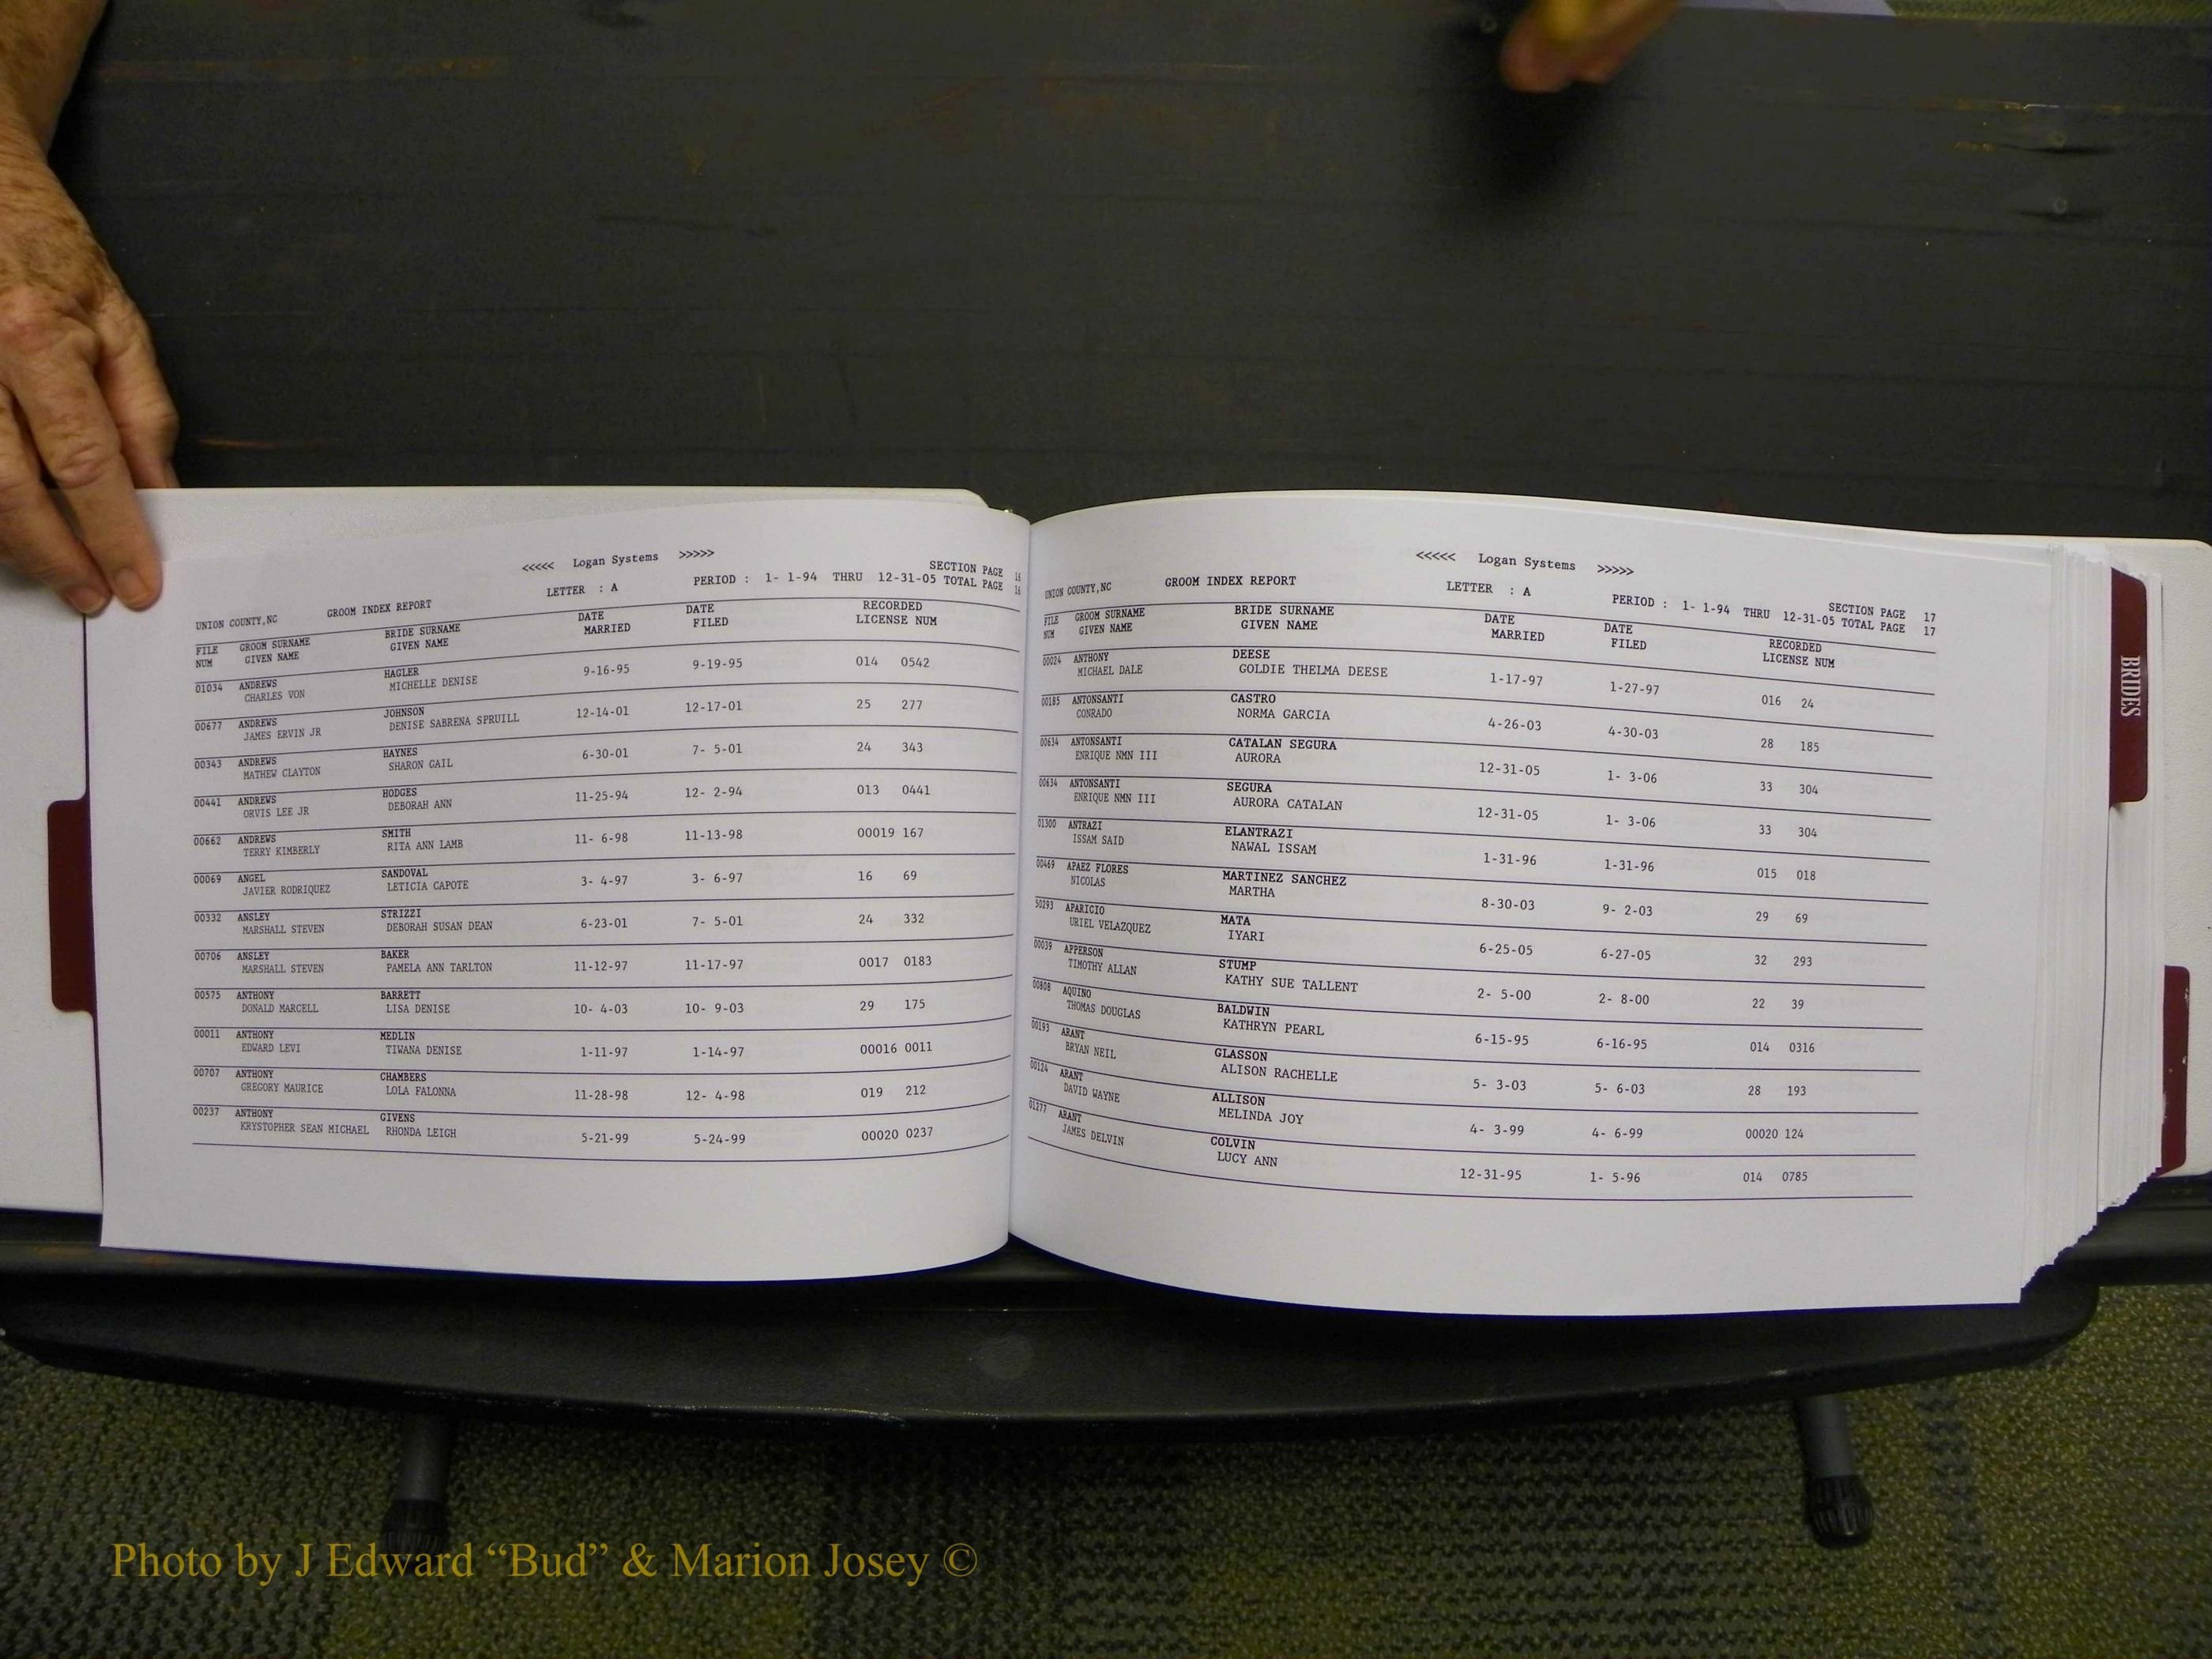 <<<<< Logan Systems >>>>>
SECTION PAGE 16
UNION COUNTY,NC GROOM INDEX REPORT LETTER : A PERIOD : 1- 1-94 THRU 12-31-05 TOTAL PAGE 16
FILE GROOM SURNAME BRIDE SURNAME DATE DATE RECORDED
NUM GIVEN NAME GIVEN NAME MARRIED FILED LICENSE NUM
01034 ANDREWS HAGLER 9-16-95 9-19-95 014 0542
CHARLES VON MICHELLE DENISE
00677 ANDREWS JOHNSON 12-14-01 12-17-01 25 277
JAMES ERVIN JR DENISE SABRENA SPRUILL
00343 ANDREWS HAYNES 6-30-01 7- 5-01 24 343
MATHEW CLAYTON SHARON GAIL
00441 ANDREWS HODGES 11-25-94 12- 2-94 013 0441
ORVIS LEE JR DEBORAH ANN
00662 ANDREWS SMITH 11- 6-98 11-13-98 00019 167
TERRY KIMBERLY RITA ANN LAMB
00069 ANGEL SANDOVAL 3- 4-97 3- 6-97 16 69
JAVIER RODRIQUEZ LETICIA CAPOTE
00332 ANSLEY STRIZZI 6-23-01 7- 5-01 24 332
MARSHALL STEVEN DEBORAH SUSAN DEAN
00706 ANSLEY BAKER 11-12-97 11-17-97 0017 0183
MARSHALL STEVEN PAMELA ANN TARLTON
00575 ANTHONY BARRETT 10- 4-03 10- 9-03 29 175
DONALD MARCELL LISA DENISE
00011 ANTHONY MEDLIN 1-11-97 1-14-97 00016 0011
EDWARD LEVI TIWANA DENISE
00707 ANTHONY CHAMBERS 11-28-98 12- 4-98 019 212
GREGORY MAURICE LOLA FALONNA
00237 ANTHONY GIVENS 5-21-99 5-24-99 00020 0237
KRYSTOPHER SEAN MICHAEL RHONDA LEIGH
<<<<< Logan Systems >>>>>
SECTION PAGE 17
UNION COUNTY,NC GROOM INDEX REPORT LETTER : A PERIOD : 1- 1-94 THRU 12-31-05 TOTAL PAGE 17
FILE GROOM SURNAME BRIDE SURNAME DATE DATE RECORDED
NUM GIVEN NAME GIVEN NAME MARRIED FILED LICENSE NUM
00024 ANTHONY DEESE 1-17-97 1-27-97 016 24
MICHAEL DALE GOLDIE THELMA DEESE
00185 ANTONSANTI CASTRO 4-26-03 4-30-03 28 185
CONRADO NORMA GARCIA
00634 ANTONSANTI CATALAN SEGURA 12-31-05 1- 3-06 33 304
ENRIQUE NMN III AURORA
00634 ANTONSANTI SEGURA 12-31-05 1- 3-06 33 304
ENRIQUE NMN III AURORA CATALAN
01300 ANTRAZI ELANTRAZI 1-31-96 1-31-96 015 018
ISSAM SAID NAWAL ISSAM
00469 APAEZ FLORES MARTINEZ SANCHEZ 8-30-03 9- 2-03 29 69
NICOLAS MARTHA
50293 APARICIO MATA 6-25-05 6-27-05 32 293
URIEL VELAZQUEZ IYARI
00039 APPERSON STUMP 2- 5-00 2- 8-00 22 39
TIMOTHY ALLAN KATHY SUE TALLENT
00808 AQUINO BALDWIN 6-15-95 6-16-95 014 0316
THOMAS DOUGLAS KATHRYN PEARL
00193 ARANT GLASSON 5- 3-03 5- 6-03 28 193
BRYAN NEIL ALISON RACHELLE
00124 ARANT ALLISON 4- 3-99 4- 6-99 00020 124
DAVID WAYNE MELINDA JOY
01277 ARANT COLVIN 12-31-95 1- 5-96 014 0785
JAMES DELVIN LUCY ANN
BRIDES
Photo by J Edward “Bud” & Marion Josey ©